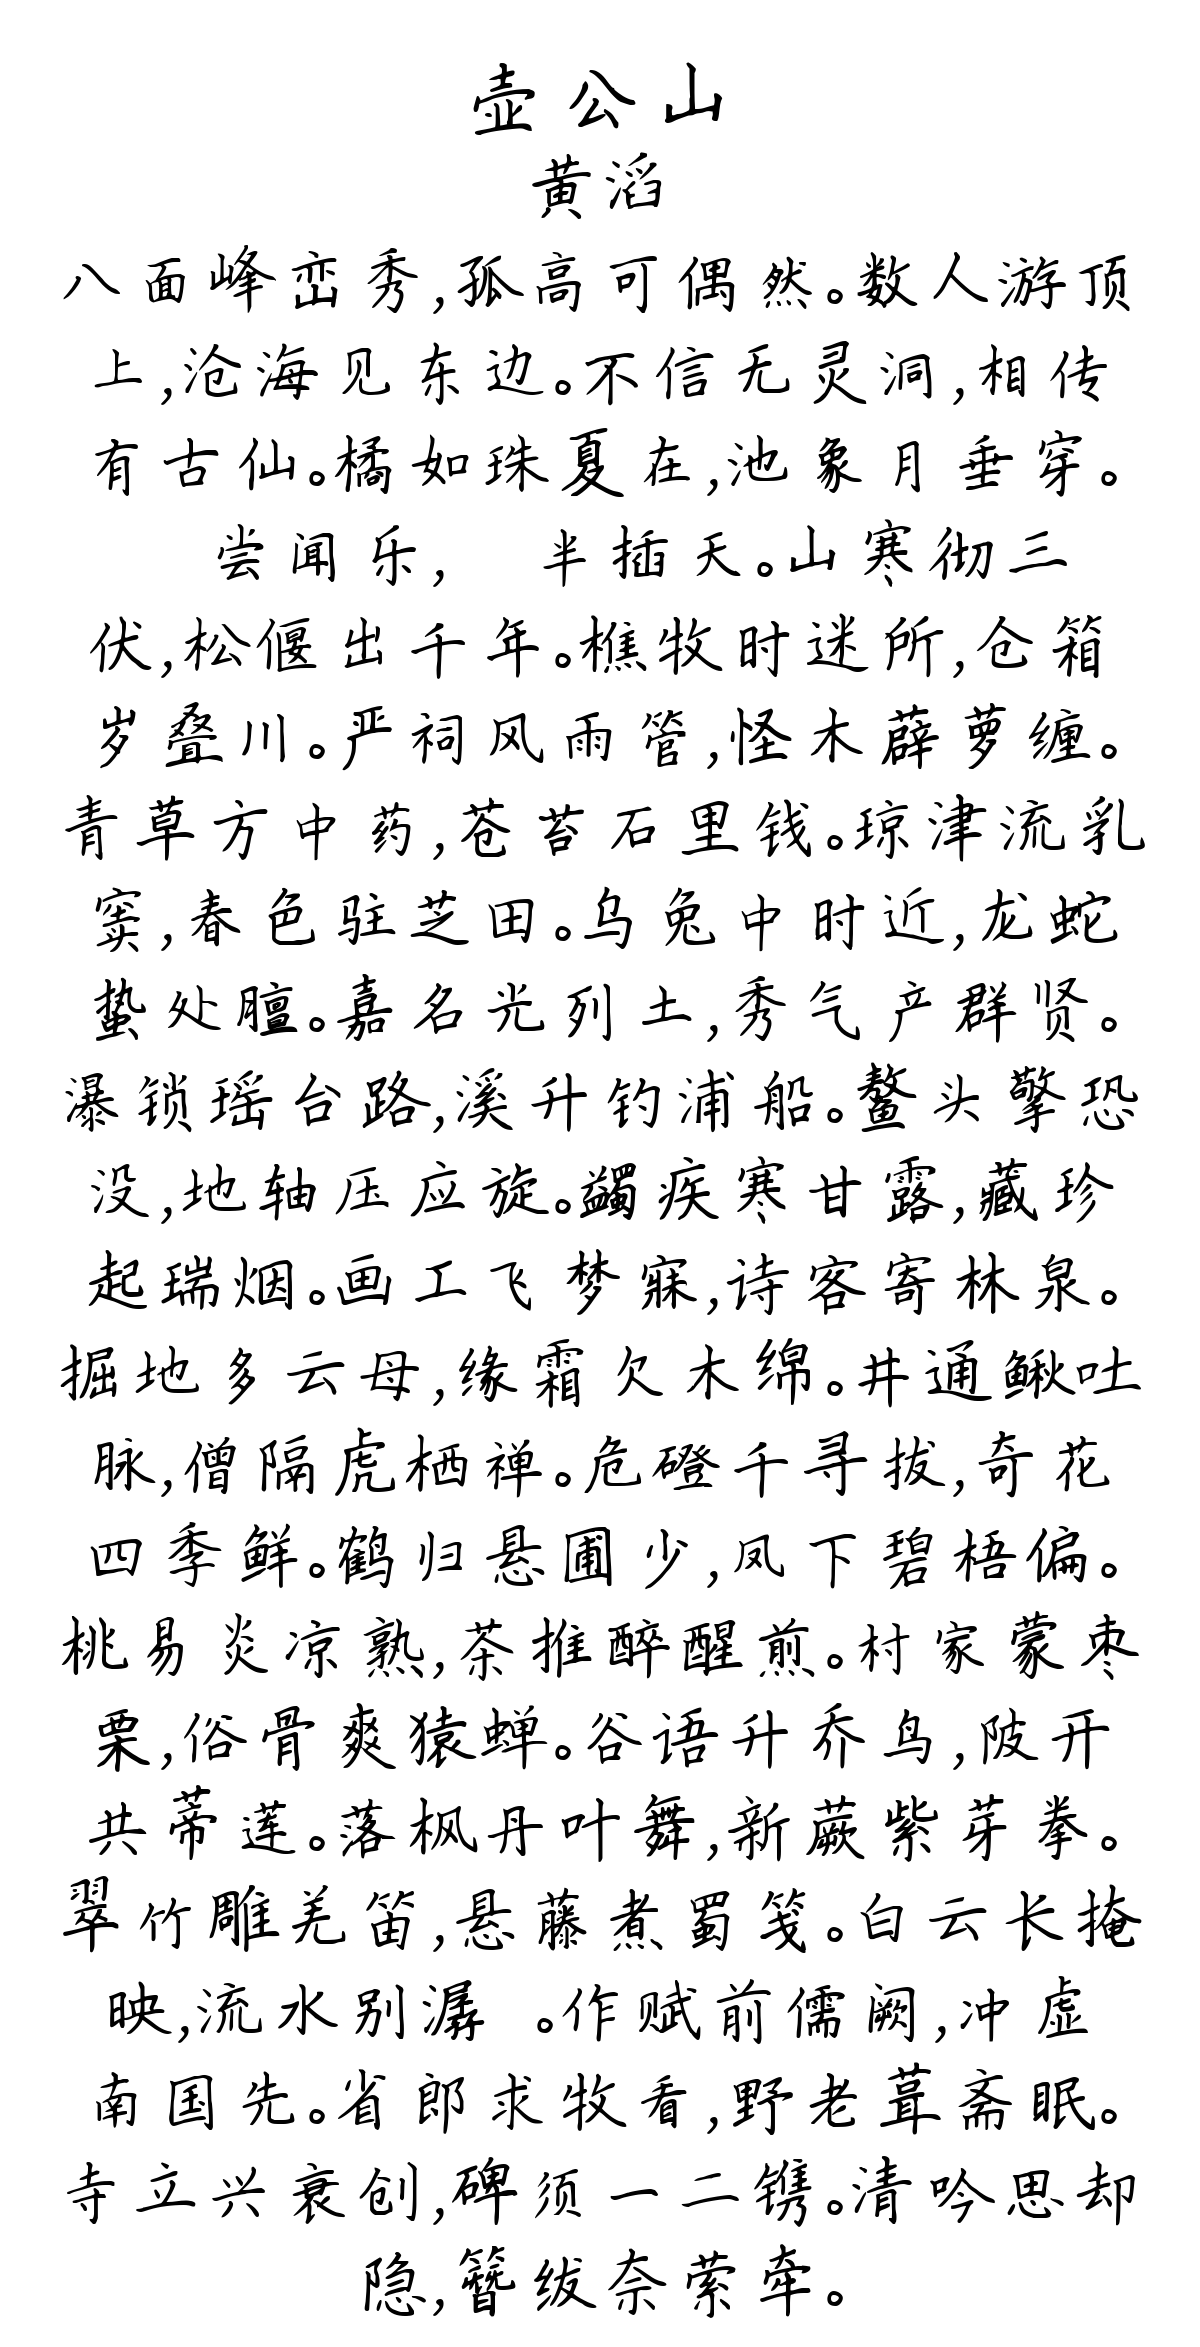 壶公山
黄滔
八面峰峦秀,孤高可偶然。数人游顶
上,沧海见东边。不信无灵洞,相传
有古仙。橘如珠夏在,池象月垂穿。
尝闻乐, 半插天。山寒彻三
伏,松偃出千年。樵牧时迷所,仓箱
岁叠川。严祠风雨管,怪木薜萝缠。
青草方中药,苍苔石里钱。琼津流乳
窦,春色驻芝田。乌兔中时近,龙蛇
蛰处膻。嘉名光列土,秀气产群贤。
瀑锁瑶台路,溪升钓浦船。鳌头擎恐
没,地轴压应旋。蠲疾寒甘露,藏珍
起瑞烟。画工飞梦寐,诗客寄林泉。
掘地多云母,缘霜欠木绵。井通鳅吐
脉,僧隔虎栖禅。危磴千寻拔,奇花
四季鲜。鹤归悬圃少,凤下碧梧偏。
桃易炎凉熟,茶推醉醒煎。村家蒙枣
栗,俗骨爽猿蝉。谷语升乔鸟,陂开
共蒂莲。落枫丹叶舞,新蕨紫芽拳。
翠竹雕羌笛,悬藤煮蜀笺。白云长掩
映,流水别潺 。作赋前儒阙,冲虚
南国先。省郎求牧看,野老葺斋眠。
寺立兴衰创,碑须一二镌。清吟思却
隐,簪绂奈萦牵。